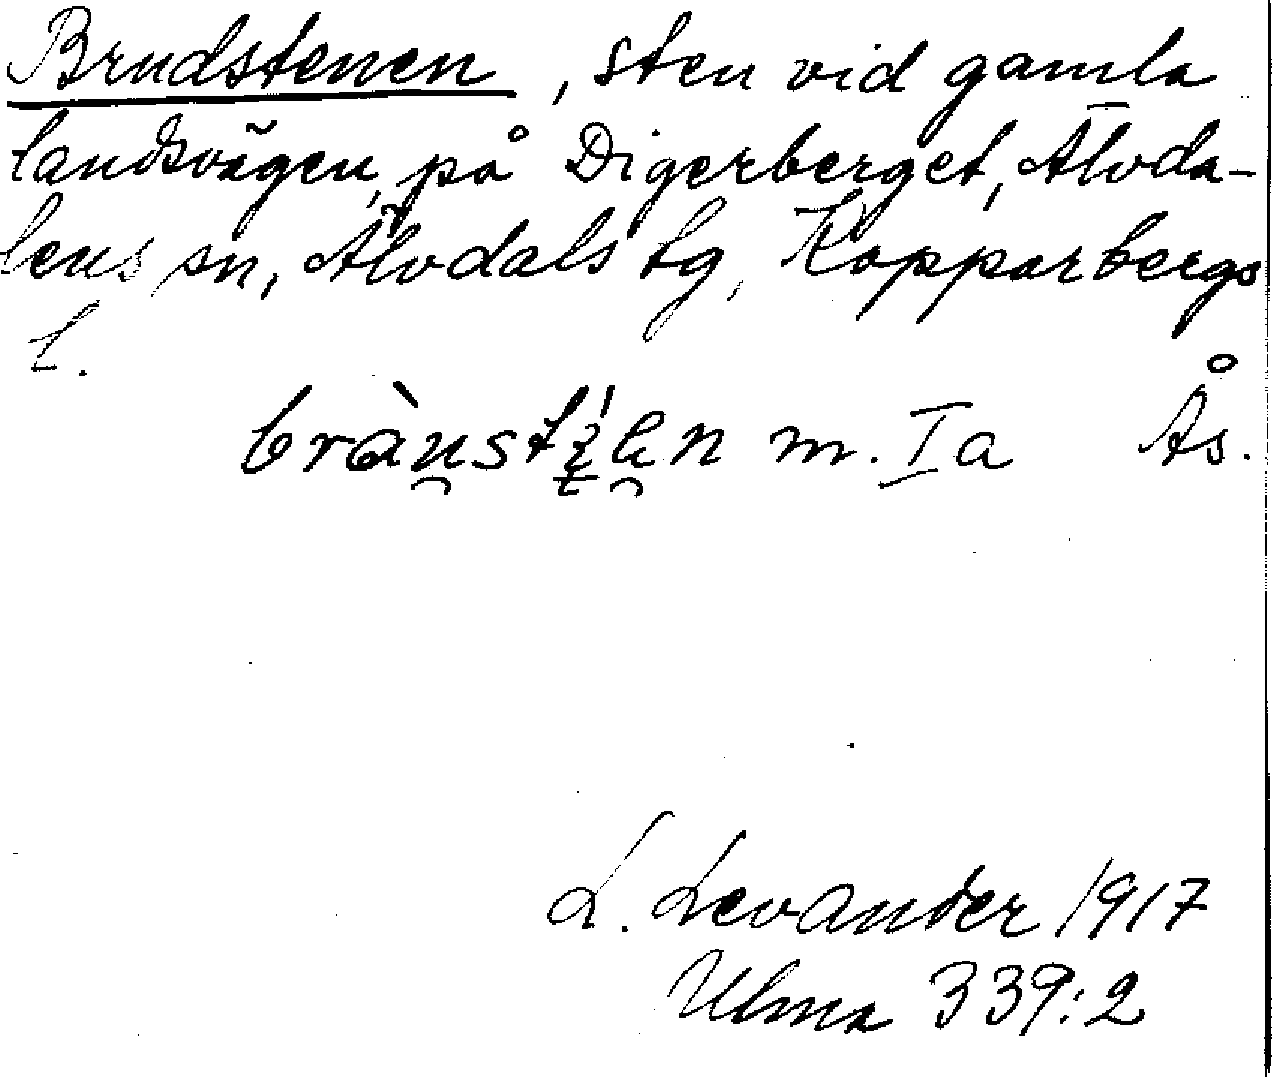 Brudstenen, sten vid gamla
landsvägen, på Digerberget, Älvda-
lens sn, Älvdals tg, Kopparbergs
l.
m. Ia Ås.
L. Levander 1917
Ulma 339:2